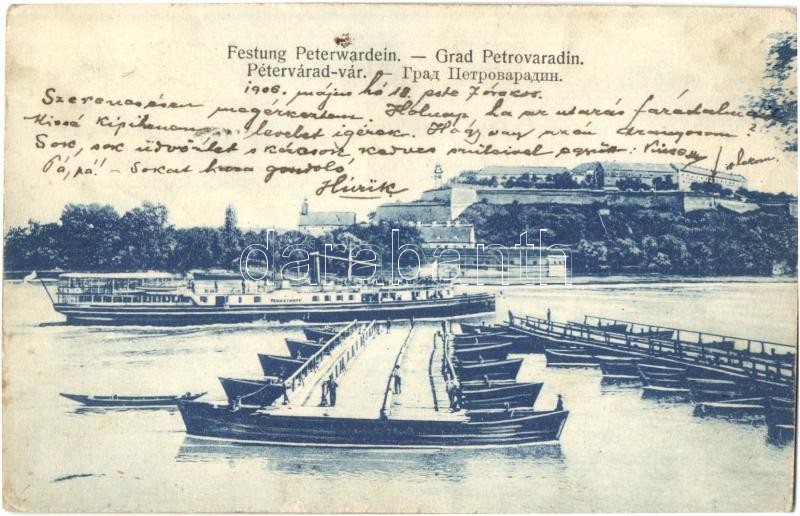 Festung Peterwardein. — Grad Petrovaradin.
Pétervárad-vár. — Град Петроварадин.
1906. május hó 18. este 7 órakor.
Szerencsésen megérkeztem. Holnap, ha az utazás fáradalmait
kissé kipihenem, levelet igérek. Hogy vagy szén aranyosom?
Sok, sok üdvözlet s kézcsók kedves szüleivel együtt:
Pá, pá! – Sokat haza gondoló
darabanth